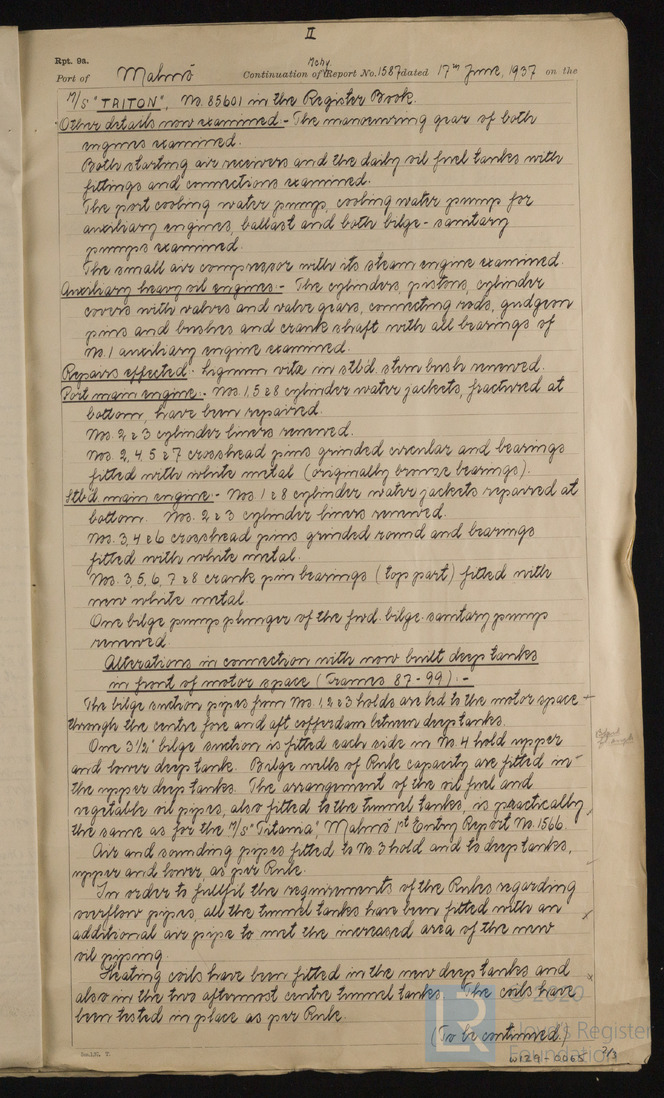 II
Rpt. 9a.
Port of Malmö Continuation of Mchy. Report No. 1587 dated 17th June, 1937 on the
M/S "TRITON", No. 85601 in the Register Book.
Other details now examined:- The manoeuvring gear of both
engines examined.
Both starting air receivers and the daily oil fuel tanks with
fittings and connections examined.
The port cooling water pump, cooling water pump for
auxiliary engines, ballast and both bilge-sanitary
pumps examined.
The small air compressor with its steam engine examined.
Auxiliary heavy oil engines:- The cylinders, pistons, cylinder
covers with valves and valve gears, connecting rods, gudgeon
pins and bushes and crank shaft with all bearings of
No. 1 auxiliary engine examined.
Repairs effected:- Lignum vitæ in stb'd. stern bush renewed.
Port main engine:- Nos. 1, 5 & 8 cylinder water jackets, fractured at
bottom, have been repaired.
Nos. 2 & 3 cylinder liners renewed.
Nos. 2, 4, 5 & 7 crosshead pins grinded circular and bearings
fitted with white metal (originally bronze bearings).
Stb'd main engine:- Nos. 1 & 8 cylinder water jackets repaired at
bottom. Nos. 2 & 3 cylinder liners renewed.
Nos. 3, 4 & 6 crosshead pins grinded round and bearings
fitted with white metal.
Nos. 3, 5, 6, 7 & 8 crank pin bearings (top part) fitted with
new white metal.
One bilge pump plunger of the fwd. bilge-sanitary pump
renewed.
Alterations in connection with now built deep tanks
in front of motor space (Frames 87-99):-
The bilge suction pipes from Nos. 1, 2 & 3 holds are led to the motor space
through the centre fore and aft cofferdam between deep tanks.
One 3 1/2" bilge suction is fitted each side in No. 4 hold upper
and lower deep tank. Bilge wells of Rule capacity are fitted in
the upper deep tanks. The arrangement of the oil fuel and
vegetable oil pipes, also fitted to the tunnel tanks, is practically
the same as for the M/S "Titania", Malmö 1st Entry Report No. 1566.
Air and sounding pipes fitted to No. 3 hold and to deep tanks,
upper and lower, as per Rule.
In order to fullfil the requirements of the Rules regarding
overflow pipes, all the tunnel tanks have been fitted with an
additional air pipe to met the increased area of the new
oil piping.
Heating coils have been fitted in the new deep tanks and
also in the two aftermost centre tunnel tanks. The coils have
been tested in place as per Rule.
(To be continued)
© 2020
LR
Lloyd's Register
Foundation
W129-0065 2/3